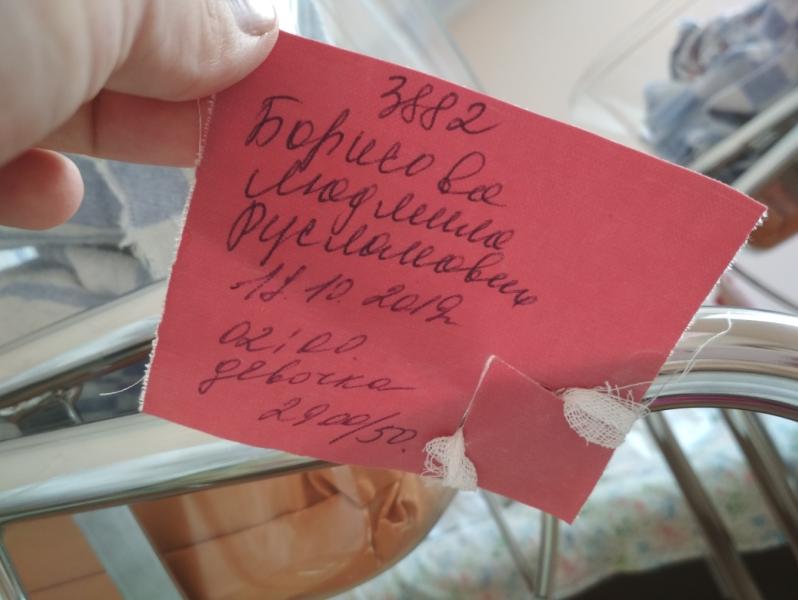 3882
Борисова
Людмила
Руслановна
18.10.2019г
02:00.
девочка
2900/50.